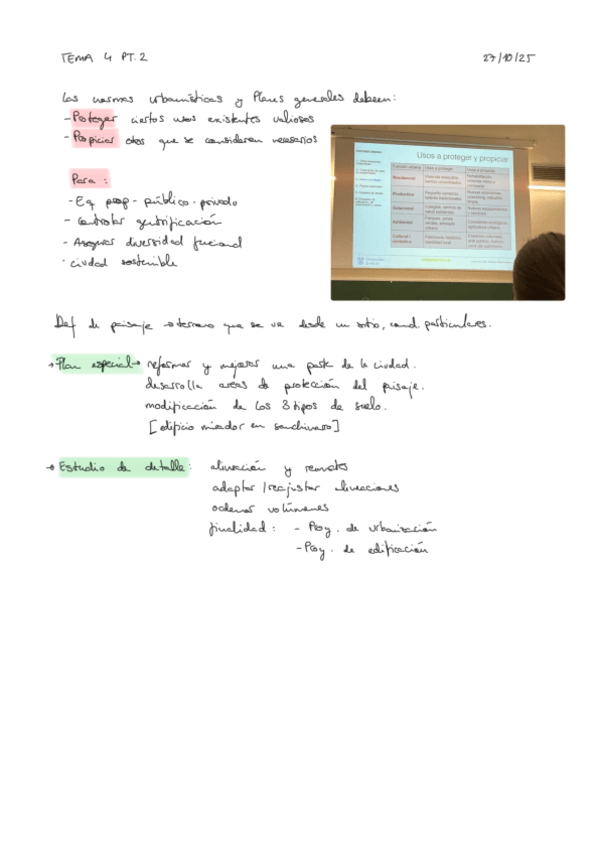 TEMA 4 PT.2
27/10/25
Las normas urbanísticas y Planes generales deben:
- Proteger ciertos usos existentes valiosos
- Propiciar otros que se consideren necesarios
Para:
- Eq prop - público - privado
- Controlar gentrificación
- Asegurar diversidad funcional
- ciudad sostenible
Usos a proteger y propiciar
Función urbana
Usos a proteger
Usos a propiciar
Residencial
Productiva
Dotacional
Ambiental
Cultural /
Def de paisaje → terreno que se ve desde un sitio, cond. particulares.
→ Plan especial → reformar y mejorar una parte de la ciudad.
desarrolla areas de protección del paisaje.
modificación de los 3 tipos de suelo.
[edificio mirador en sanchinarro]
→ Estudio de detalle: alineación y remates
adaptar / reajustar alineaciones
ordenar volúmenes
finalidad: - Proy. de urbanización
- Proy. de edificación